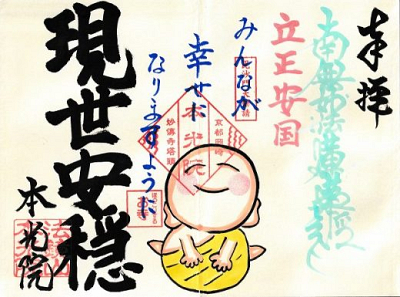 奉拝
南無妙法蓮華経
立正安国
みんなが
幸せに
なりますように
本光院
京都岡崎
妙傳寺塔頭
現世安穏
本光院